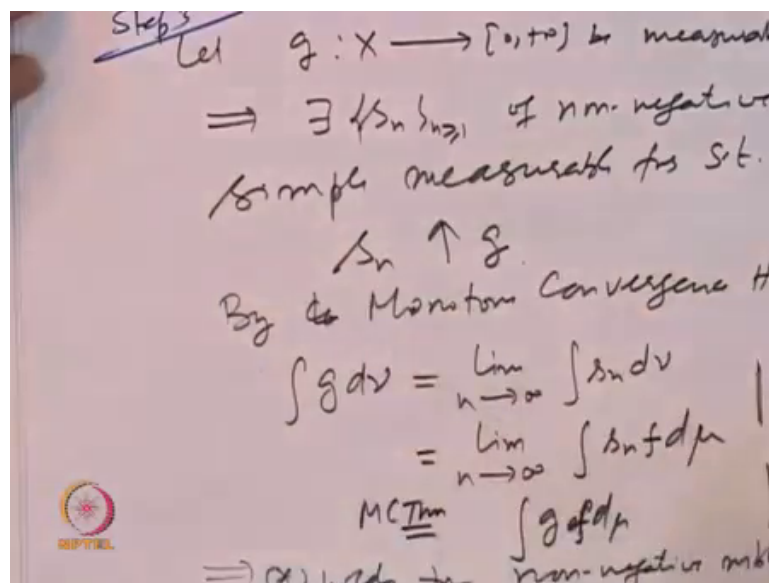 Step 3
Let g : X ⟶ [0,+∞] be measurab
⟹ ∃ {sn}n≥1 of non-negative
simple measurable fns s.t.
sn ↑ g.
By Monotone Convergence
∫ g dν = lim n→∞ ∫ sn dν
= lim n→∞ ∫ sn f dμ
MC Thm = ∫ g f dμ
NPTEL
⟹ holds for non-negative mble